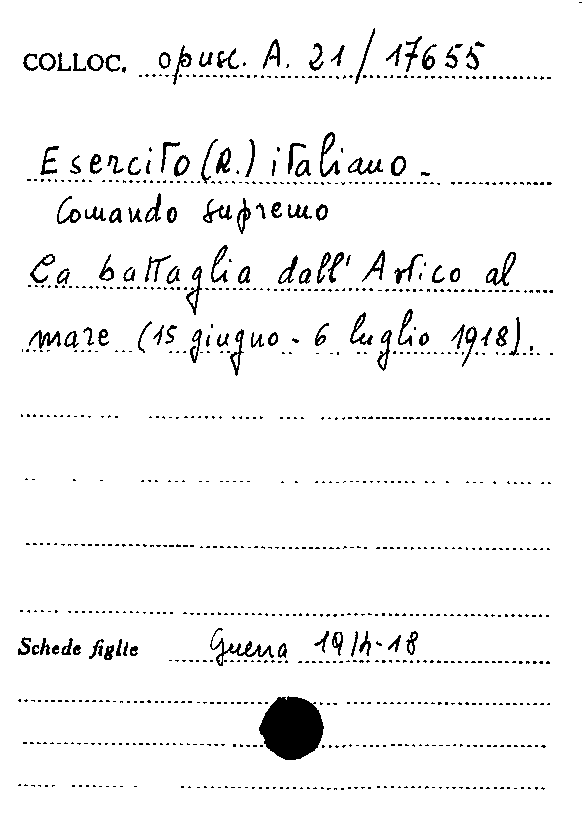 COLLOC. opusc. A. 21 / 17655
Esercito (R.) italiano.
Comando supremo
La battaglia dall' Astico al
mare (15 giugno - 6 luglio 1918).
Schede figlie Guerra 1914-18